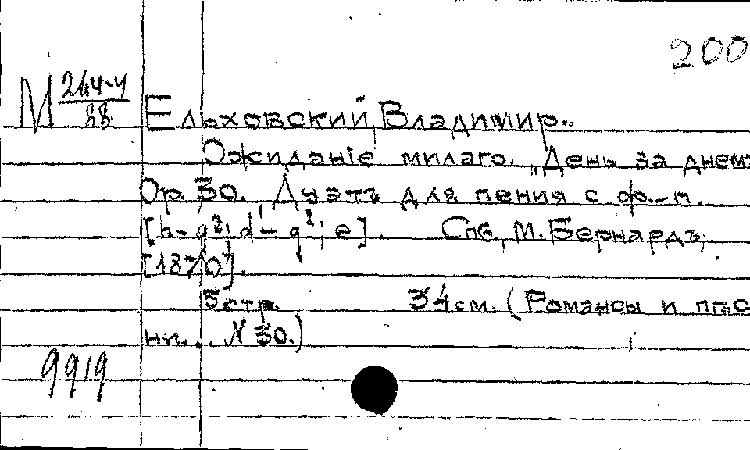 200
М 244-4/38
Ельховский, Владимир.
Ожиданіе милаго. „День за днемъ
Ор. 30. Дуэтъ для пения с ф.-п.
[h- g²; d¹- g²; e]. Спб., М. Бернардъ,
[1870].
5 стр. 34 см. (Романсы и пѣс-
ни... N 30.)
9919